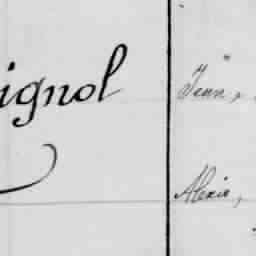 ignol
Jean,
Alexis,